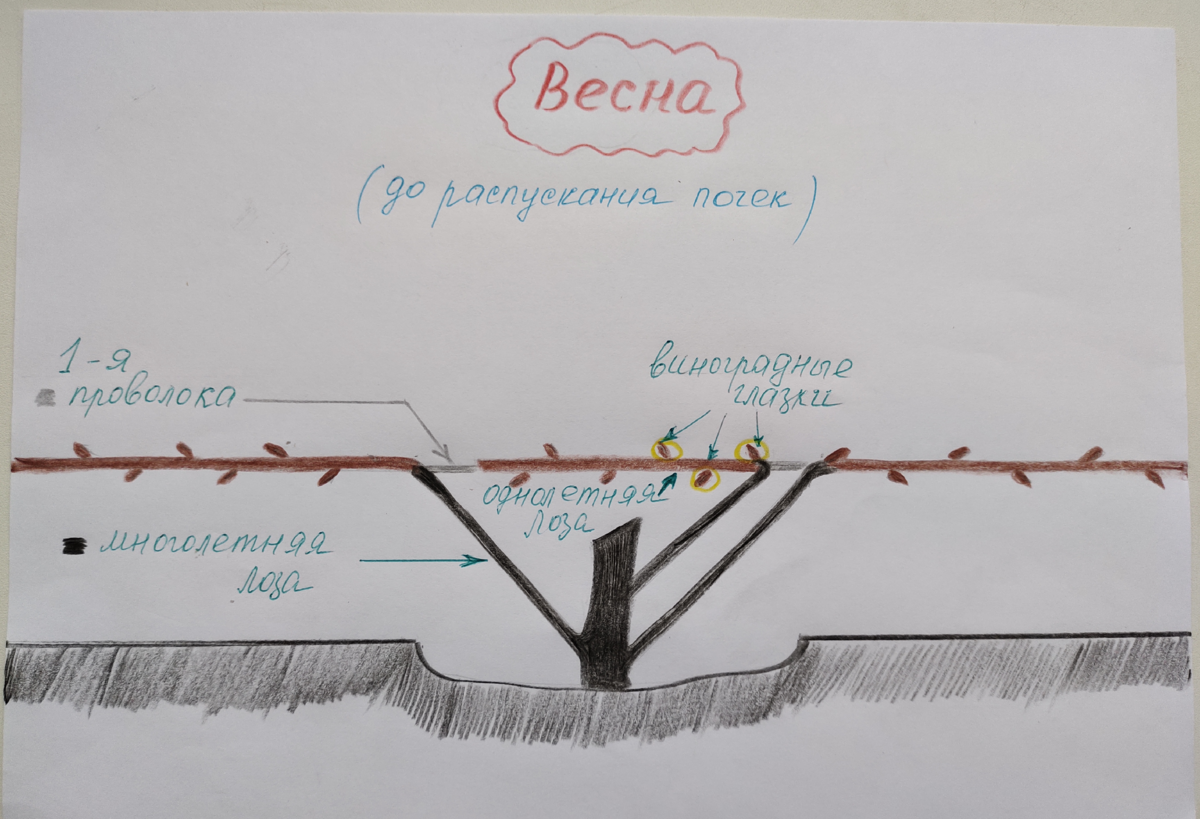 Весна
(до распускания почек)
1-я
проволока
виноградные
глазки
однолетняя
лоза
многолетняя
лоза